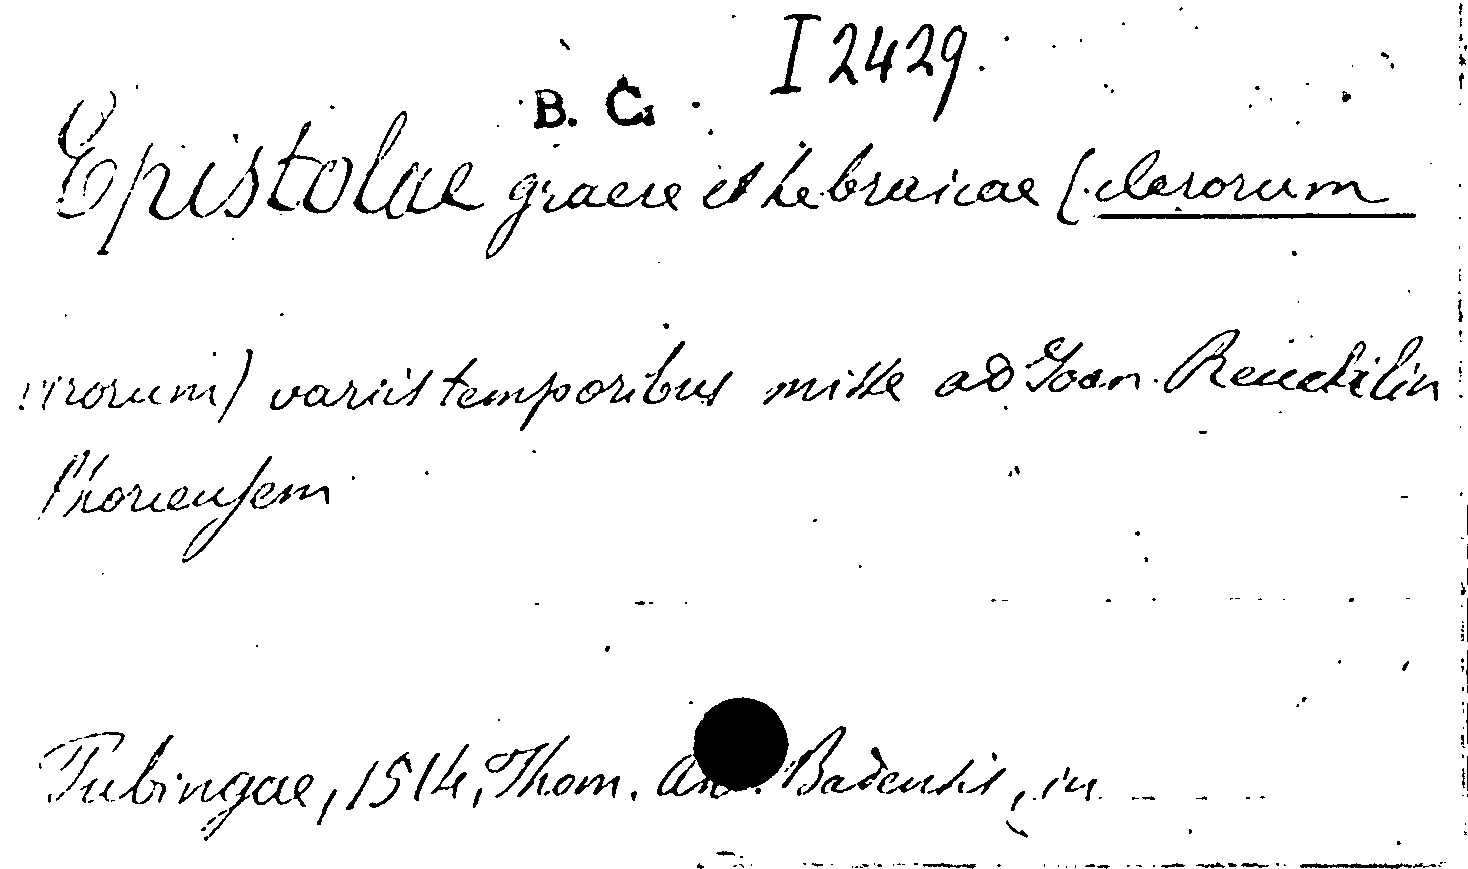 I 2429.
B. C.
Epistolae graece et hebraicae (clarorum
virorum) variis temporibus misse ad Joan. Reuchilin
Phorcensem
Tubingae, 1514, Thom. An. Badensis, in